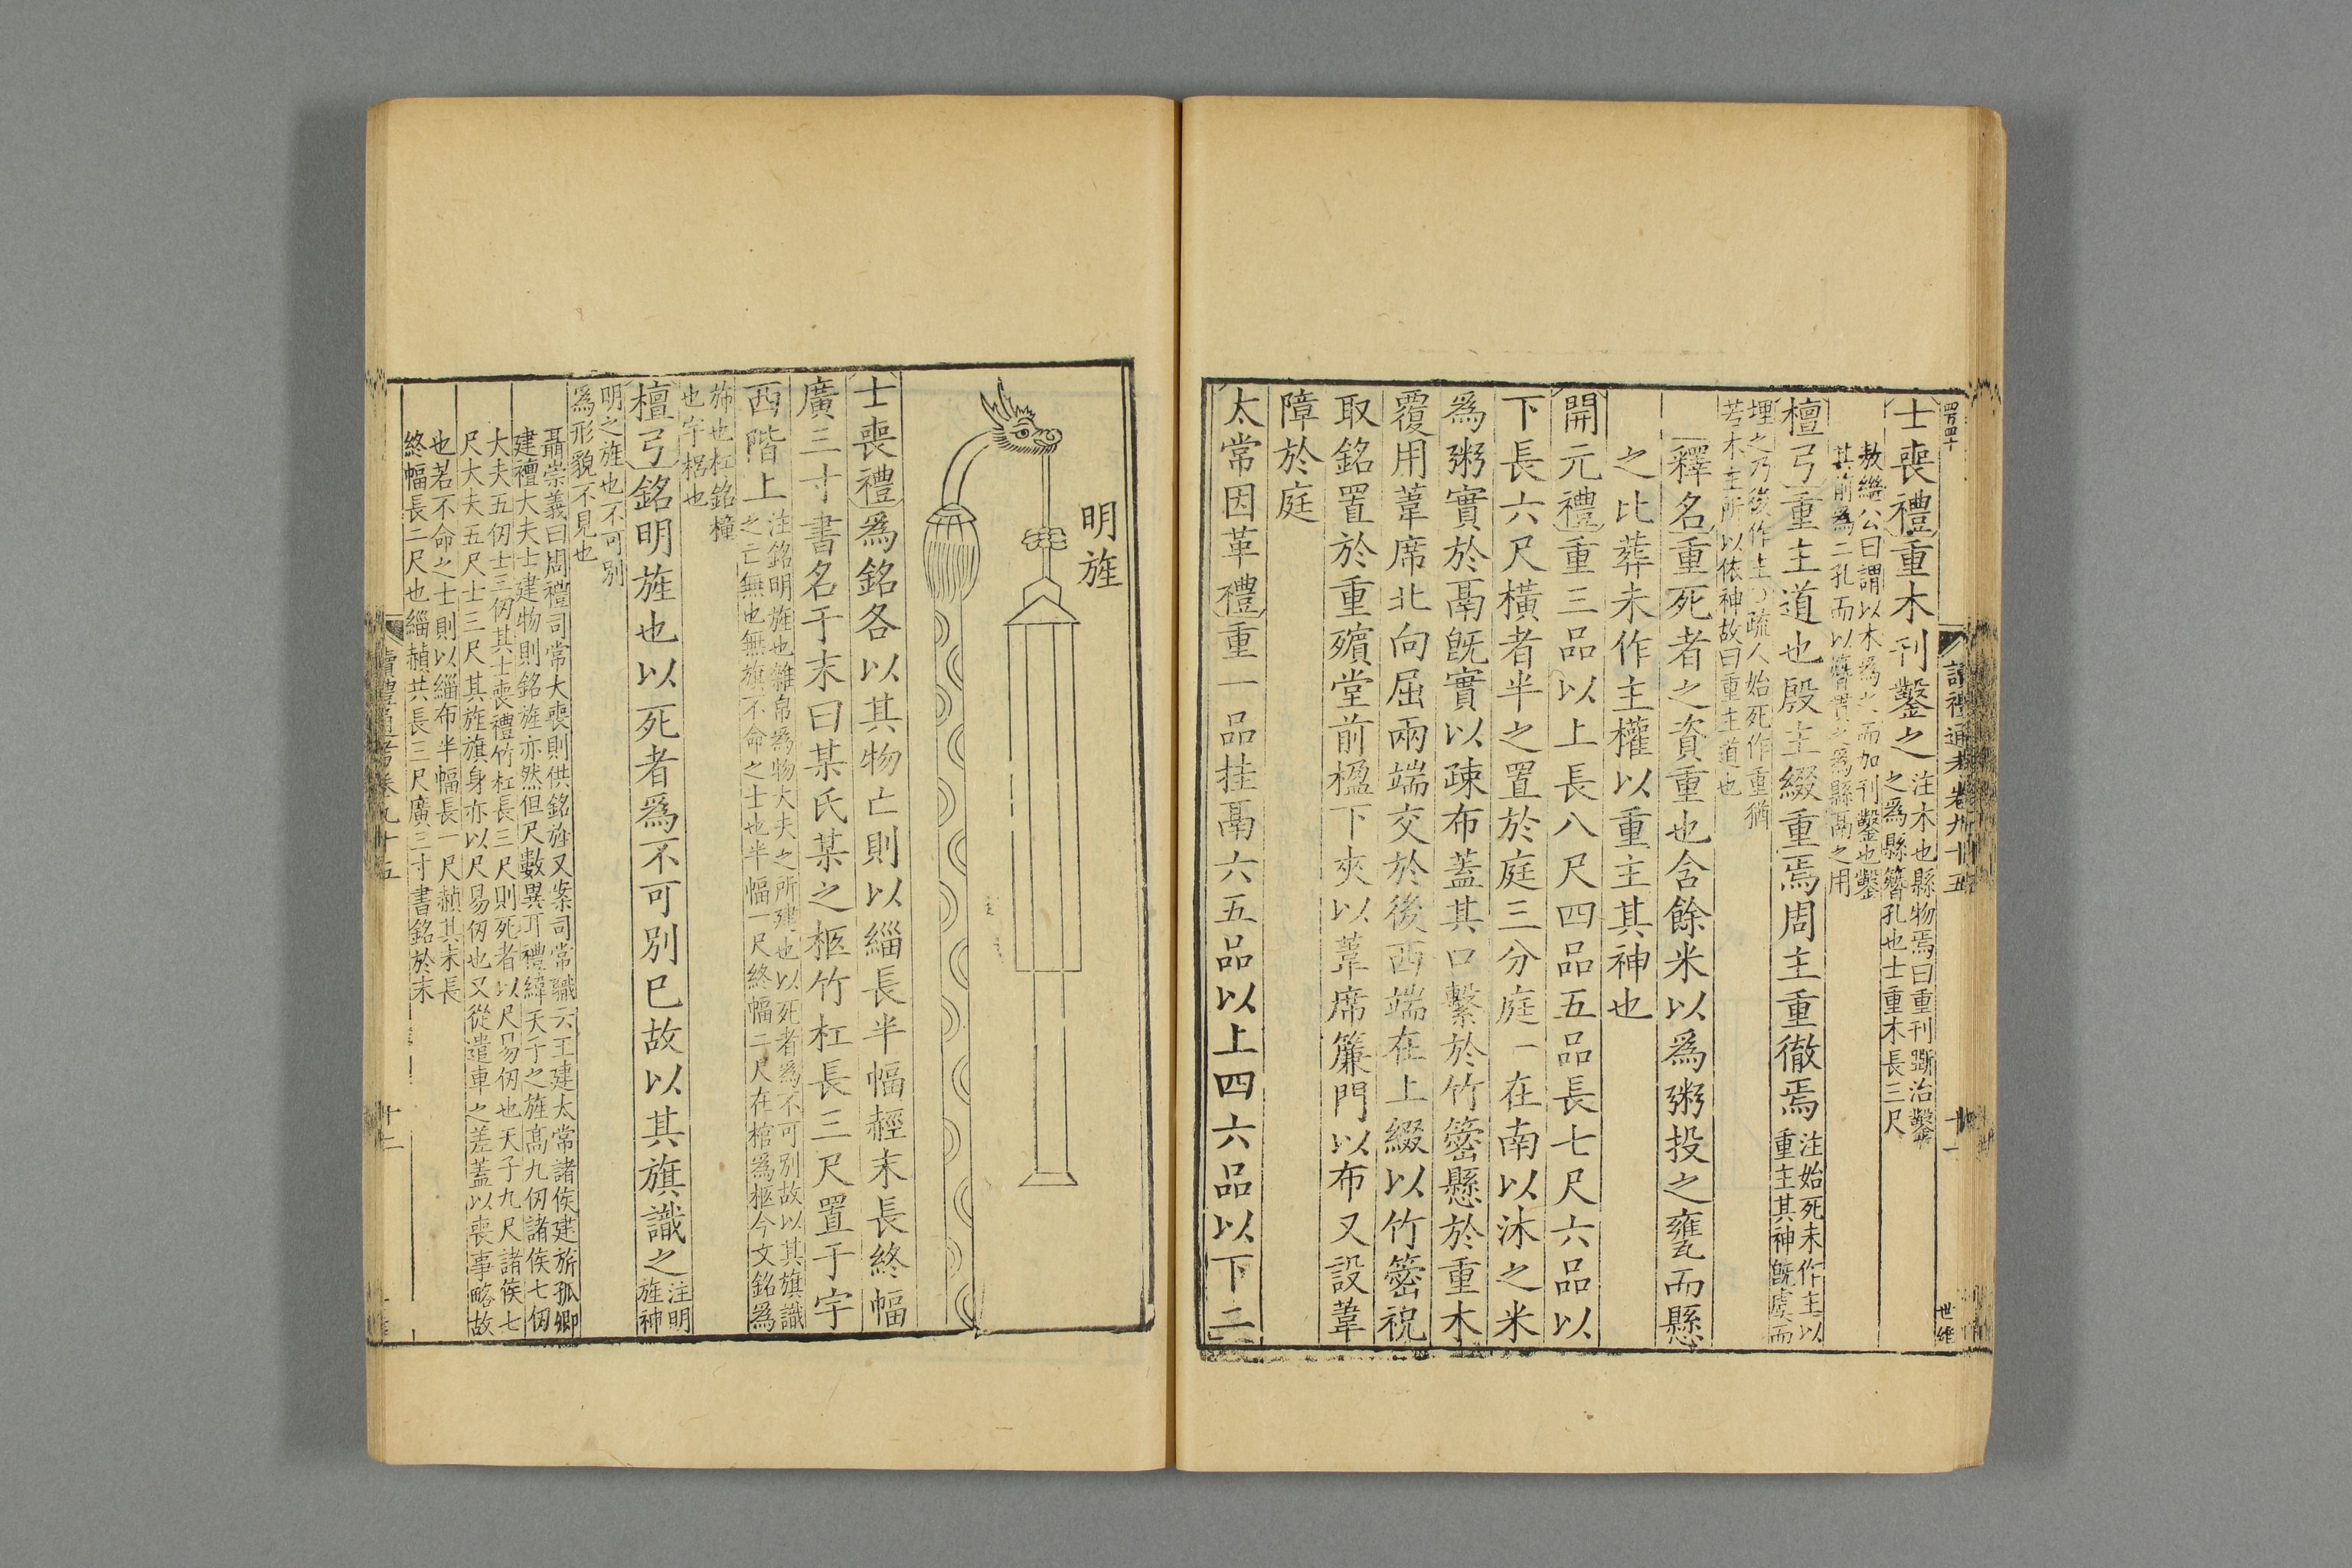 四百四十
讀禮通考卷九十五
十一
世維
士喪禮重木刊鑿之注木也縣物焉曰重刊斵治鑿
之爲縣簪孔也士重木長三尺
敖繼公曰謂以木爲之而加刊鑿也鑿
其前爲二孔而以簪貫之爲縣鬲之用
檀弓重主道也殷主綴重焉周主重徹焉注始死未作主以
重主其神旣虞而
埋之乃後作主○疏人始死作重猶
若木主所以依神故曰重主道也
釋名重死者之資重也含餘米以爲粥投之甕而懸
之比葬未作主權以重主其神也
開元禮重三品以上長八尺四品五品長七尺六品以
下長六尺橫者半之置於庭三分庭一在南以沐之米
爲粥實於鬲旣實以疎布蓋其口繫於竹䈿懸於重木
覆用葦席北向屈兩端交於後西端在上綴以竹䈿祝
取銘置於重殯堂前楹下夾以葦席簾門以布又設葦
障於庭
太常因革禮重一品挂鬲六五品以上四六品以下二
明旌
士喪禮爲銘各以其物亡則以緇長半幅䞓末長終幅
廣三寸書名于末曰某氏某之柩竹杠長三尺置于宇
西階上注銘明旌也雜帛爲物大夫之所建也以死者爲不可別故以其旗識
之亡無也無旗不命之士也半幅一尺終幅二尺在棺爲柩今文銘爲
斾也杠銘橦
也宇梠也
檀弓銘明旌也以死者爲不可別已故以其旗識之注明
旌神
明之旌也不可別
爲形貌不見也
聶崇義曰周禮司常大喪則供銘旌又案司常職云王建太常諸侯建旂孤卿
建襢大夫士建物則銘旌亦然但尺數異耳禮緯天子之旌髙九仞諸侯七仞
大夫五仞士三仞其士喪禮竹杠長三尺則死者以尺易仞也天子九尺諸侯七
尺大夫五尺士三尺其旌旗身亦以尺易仞也又從遣車之差蓋以喪事略故
也若不命之士則以緇布半幅長一尺赬其末長
終幅長二尺也緇赬共長三尺廣三寸書銘於末
讀禮通考卷九十五
十二